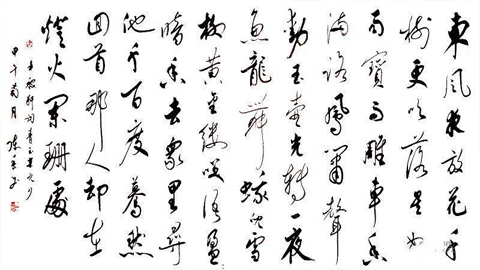 東風夜放花千
樹更吹落星如
雨寶馬雕車香
滿路鳳簫聲
動玉壺光轉一夜
魚龍舞蛾兒雪
柳黃金縷笑語盈
暗香去衆里尋
他千百度驀然
回首那人却在
燈火闌珊處
辛棄疾詞青玉案元夕
甲午菊月陳